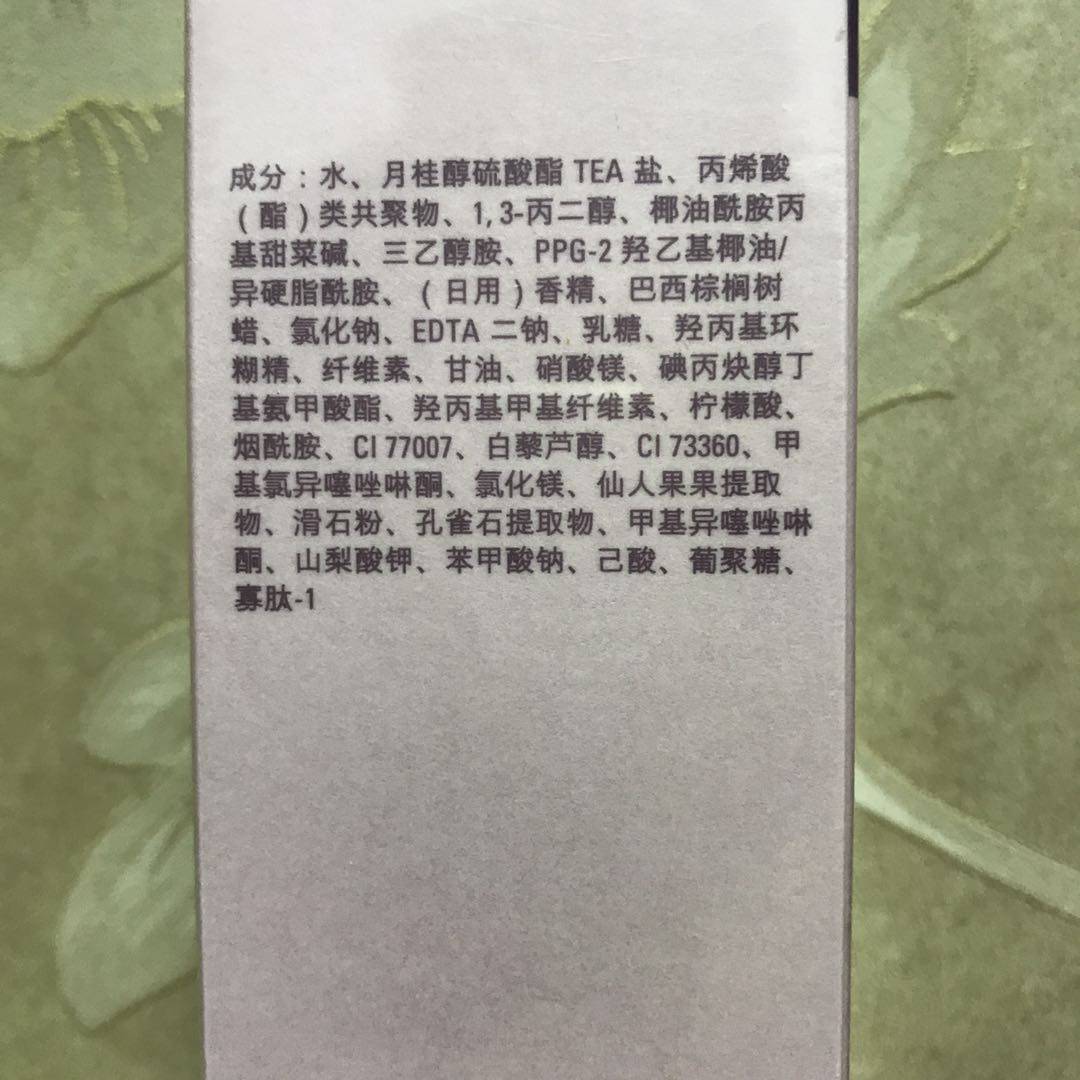 成分：水、月桂醇硫酸酯 TEA 盐、丙烯酸
（酯）类共聚物、1,3-丙二醇、椰油酰胺丙
基甜菜碱、三乙醇胺、PPG-2 羟乙基椰油/
异硬脂酰胺、（日用）香精、巴西棕榈树
蜡、氯化钠、EDTA 二钠、乳糖、羟丙基环
糊精、纤维素、甘油、硝酸镁、碘丙炔醇丁
基氨甲酸酯、羟丙基甲基纤维素、柠檬酸、
烟酰胺、CI 77007、白藜芦醇、CI 73360、甲
基氯异噻唑啉酮、氯化镁、仙人果果提取
物、滑石粉、孔雀石提取物、甲基异噻唑啉
酮、山梨酸钾、苯甲酸钠、己酸、葡聚糖、
寡肽-1